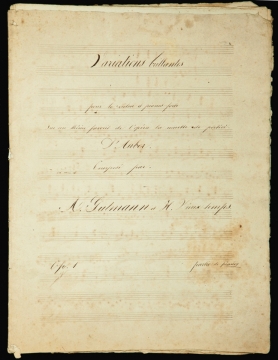 Variations brillantes
pour le violon et piano forte
sur un thème favori de l'opéra la muette de portici
D'Auber
Composé par
A. Gutmann et H. Vieuxtemps
Op. 1 partie de piano